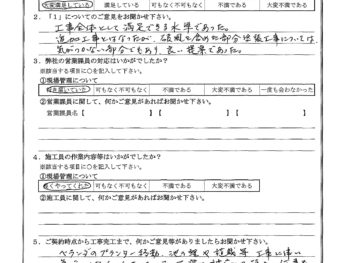 大変満足している 満足している 可もなく不可もなく 不満である 大変不満である
2.「1」についてのご意見をお聞かせ下さい。
工事全体として満足できる水準であった。
追加工事とはなったが、破風を含めた部分塗装工事については、
気がつかない部分でもあり、良い提案であった。
3. 弊社の営業課員の対応はいかがでしたか?
※該当する項目に○を記入して下さい。
①現場管理について
行き届いていた 可もなく不可もなく 不満である 大変不満である 一度も会わなかった
②営業課員に関して、何かご意見があればお聞かせ下さい。
営業課員名【 】【 】【 】
4. 施工員の作業内容等はいかがでしたか?
※該当する項目に○を記入して下さい。
①現場管理について
良くやってくれた 可もなく不可もなく 不満である 大変不満である
②施工員に関して、何かご意見があればお聞かせ下さい。
5. ご契約時点から工事完工まで、何かご意見等がありましたらお聞かせ下さい。
ベランダのプランター移動、池の